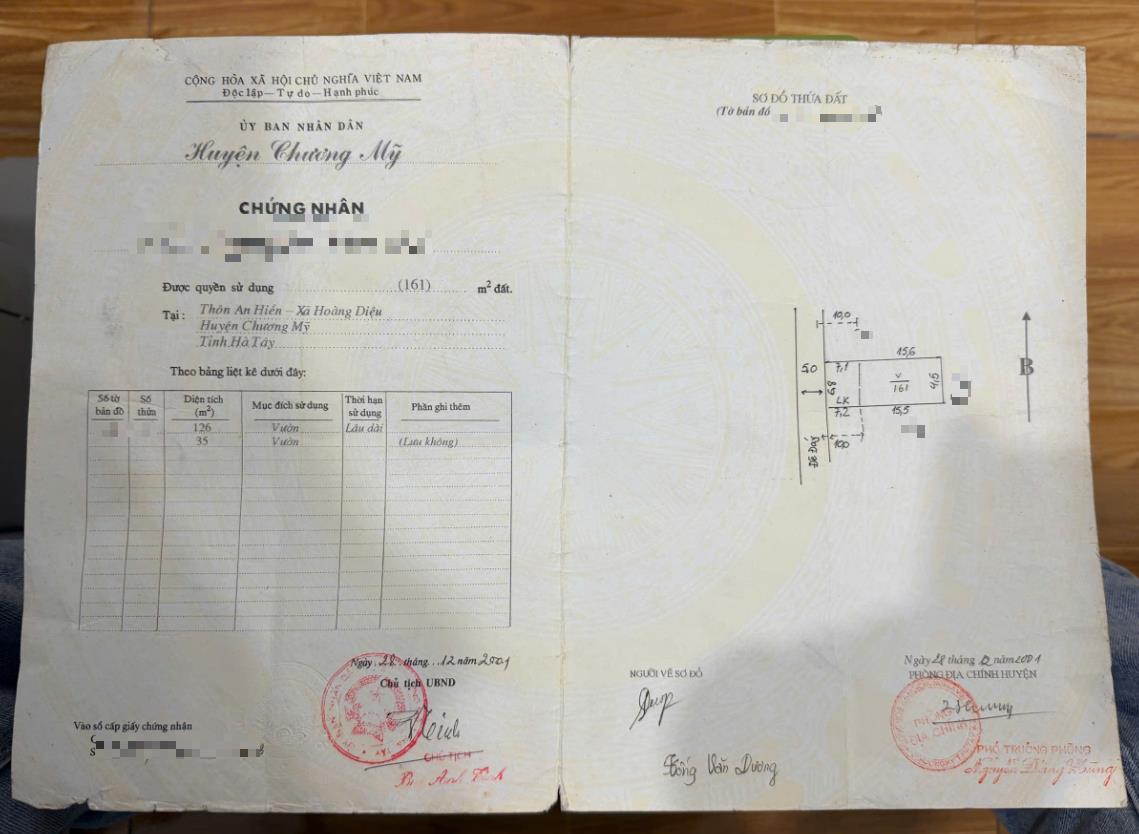 CỘNG HÒA XÃ HỘI CHỦ NGHĨA VIỆT NAM
Độc lập — Tự do — Hạnh phúc
ỦY BAN NHÂN DÂN
Huyện Chương Mỹ
CHỨNG NHẬN
Được quyền sử dụng (161) m² đất.
Tại : Thôn An Hiền – Xã Hoàng Diệu
Huyện Chương Mỹ
Tỉnh Hà Tây
Theo bảng liệt kê dưới đây:
Số tờ bản đồ Số thửa Diện tích (m²) Mục đích sử dụng Thời hạn sử dụng Phần ghi thêm
126 Vườn Lâu dài
35 Vườn (Lưu không)
Ngày 28 tháng 12 năm 2001
Chủ tịch UBND
CHỦ TỊCH
Vào sổ cấp giấy chứng nhận
SƠ ĐỒ THỬA ĐẤT
(Tờ bản đồ
10,0
15,6
5,0
7,1
V
161
6,8
9,5
LK
7,2
15,5
10,0
Đê Đáy
B
NGƯỜI VẼ SƠ ĐỒ
Tống Văn Dương
Ngày 28 tháng 12 năm 2001
PHÒNG ĐỊA CHÍNH HUYỆN
PHÒNG
ĐỊA CHÍNH
PHÓ TRƯỞNG PHÒNG
Nguyễn Đăng Hùng